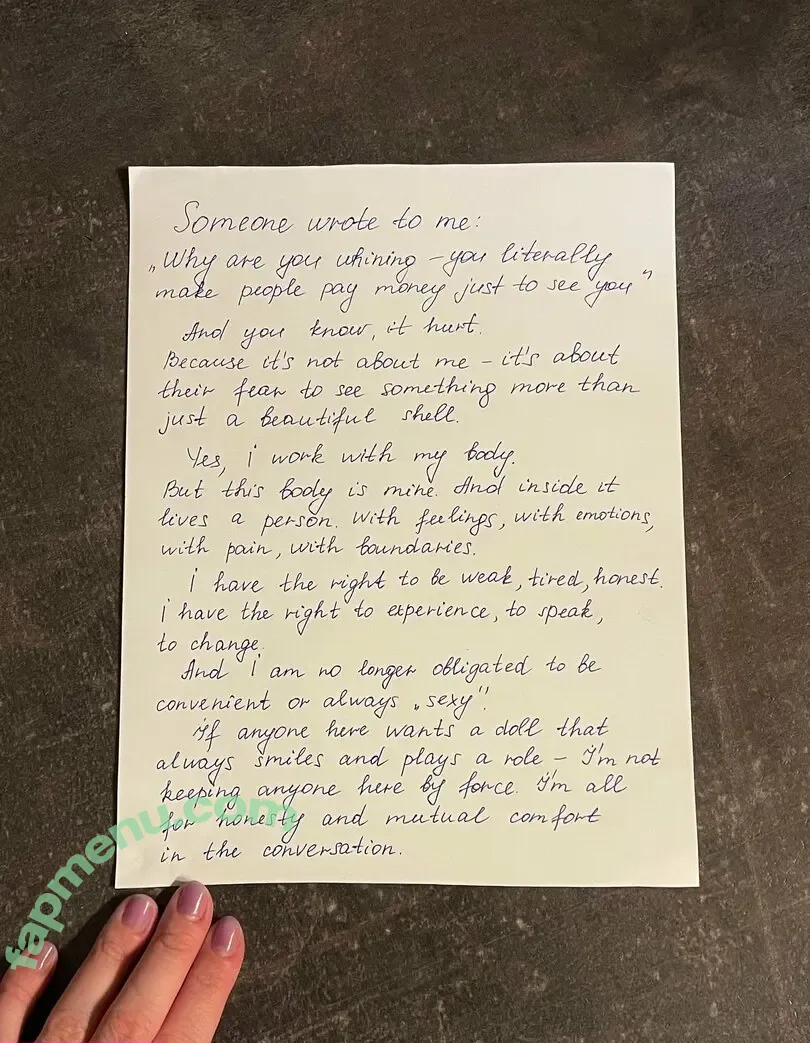 Someone wrote to me:
„Why are you whining – you literally
make people pay money just to see you"
And you know, it hurt.
Because it's not about me – it's about
their fear to see something more than
just a beautiful shell.
Yes, i work with my body.
But this body is mine. And inside it
lives a person. With feelings, with emotions,
with pain, with boundaries.
I have the right to be weak, tired, honest.
I have the right to experience, to speak,
to change.
And I am no longer obligated to be
convenient or always „sexy".
If anyone here wants a doll that
always smiles and plays a role – I'm not
keeping anyone here by force. I'm all
for honesty and mutual comfort
in the conversation.
fapmenu.com